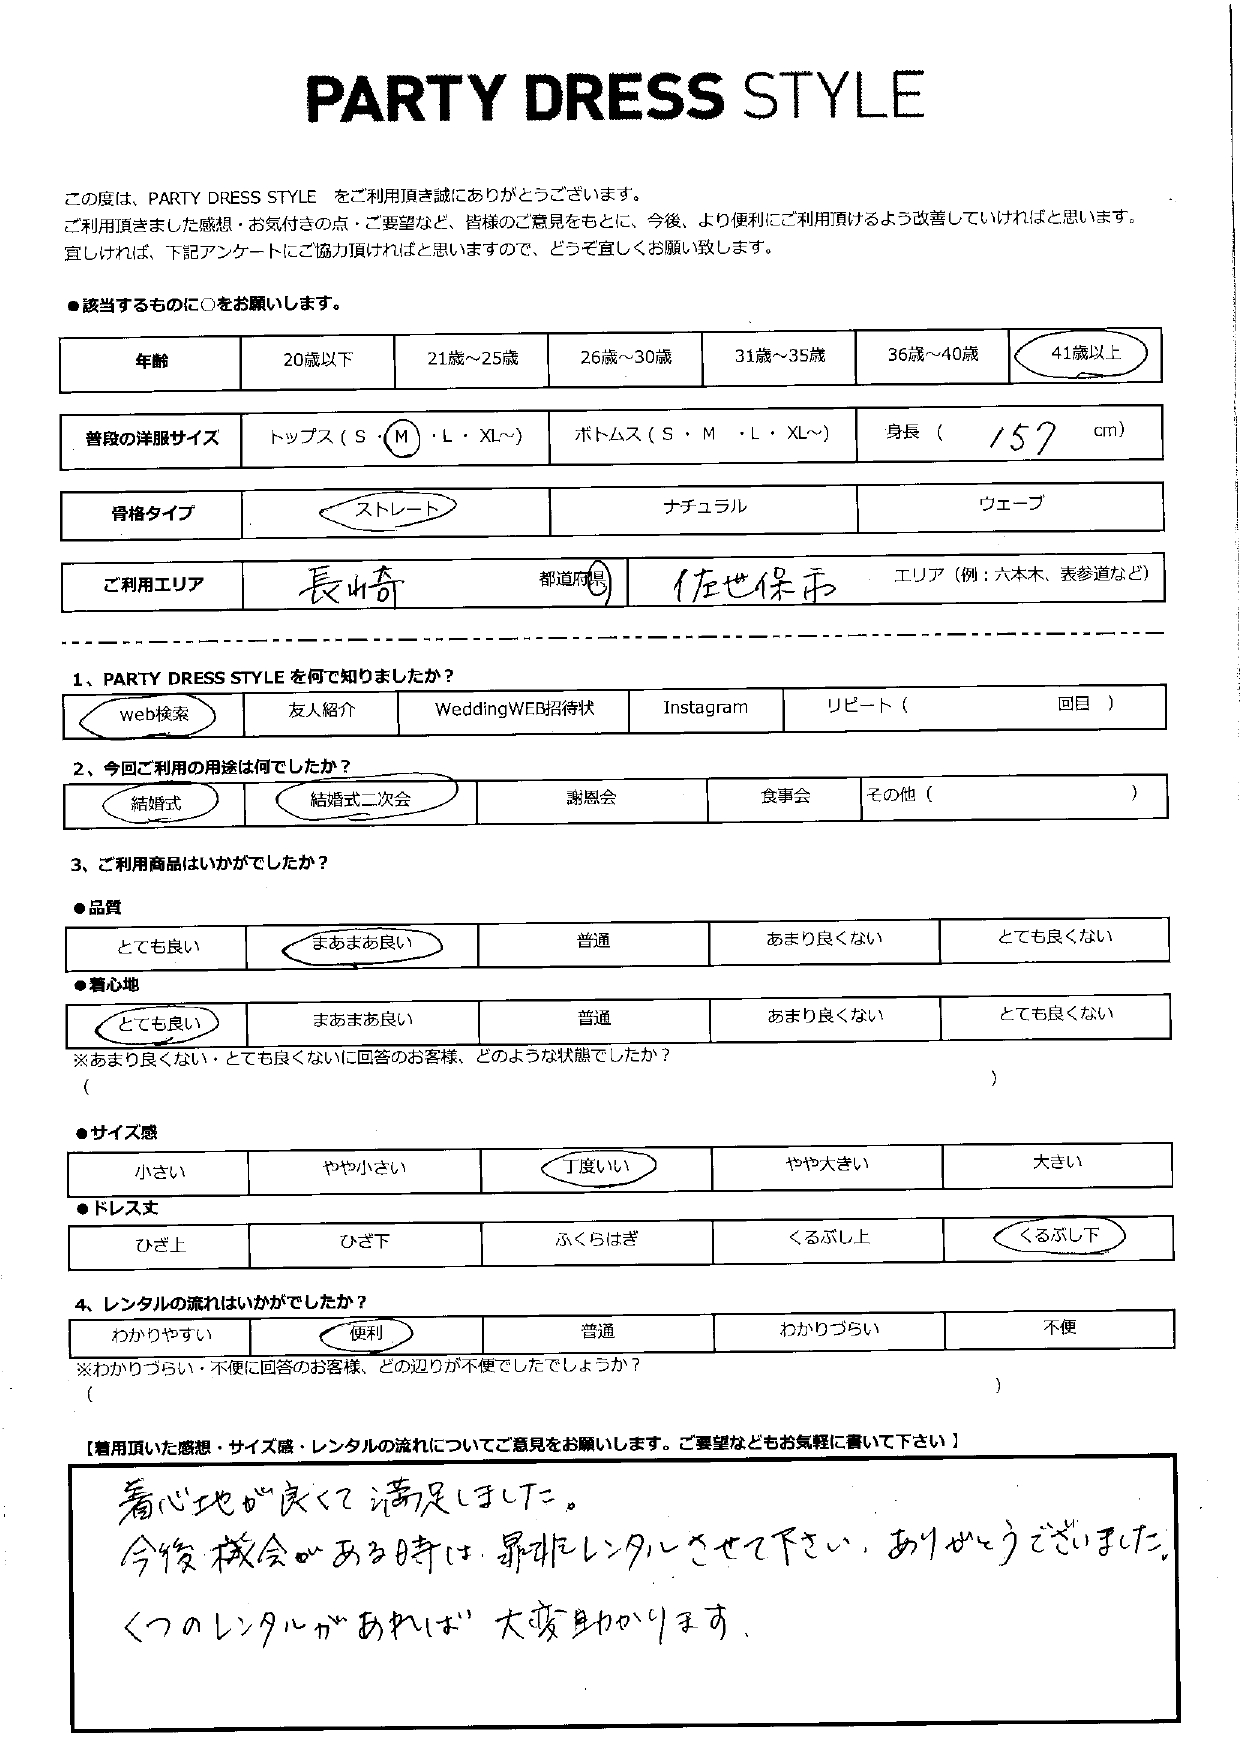 PARTY DRESS STYLE
この度は、PARTY DRESS STYLE をご利用頂き誠にありがとうございます。
ご利用頂きました感想・お気付きの点・ご要望など、皆様のご意見をもとに、今後、より便利にご利用頂けるよう改善していければと思います。
宜しければ、下記アンケートにご協力頂ければと思いますので、どうぞ宜しくお願い致します。
●該当するものに○をお願いします。
年齢 20歳以下 21歳～25歳 26歳～30歳 31歳～35歳 36歳～40歳 41歳以上
普段の洋服サイズ トップス（ S ・ M ・ L ・ XL～） ボトムス（ S ・ M ・ L ・ XL～） 身長（ 157 cm）
骨格タイプ ストレート ナチュラル ウェーブ
ご利用エリア 長崎 都道府県 佐世保市 エリア（例：六本木、表参道など）
1、PARTY DRESS STYLE を何で知りましたか？
web検索 友人紹介 WeddingWEB招待状 Instagram リピート（ 回目 ）
2、今回ご利用の用途は何でしたか？
結婚式 結婚式二次会 謝恩会 食事会 その他（ ）
3、ご利用商品はいかがでしたか？
●品質
とても良い まあまあ良い 普通 あまり良くない とても良くない
●着心地
とても良い まあまあ良い 普通 あまり良くない とても良くない
※あまり良くない・とても良くないに回答のお客様、どのような状態でしたか？
（ ）
●サイズ感
小さい やや小さい 丁度いい やや大きい 大きい
●ドレス丈
ひざ上 ひざ下 ふくらはぎ くるぶし上 くるぶし下
4、レンタルの流れはいかがでしたか？
わかりやすい 便利 普通 わかりづらい 不便
※わかりづらい・不便に回答のお客様、どの辺りが不便でしたでしょうか？
（ ）
【着用頂いた感想・サイズ感・レンタルの流れについてご意見をお願いします。ご要望などもお気軽に書いて下さい 】
着心地が良くて満足しました。
今後機会がある時は、是非レンタルさせて下さい。ありがとうございました。
くつのレンタルがあれば 大変助かります。